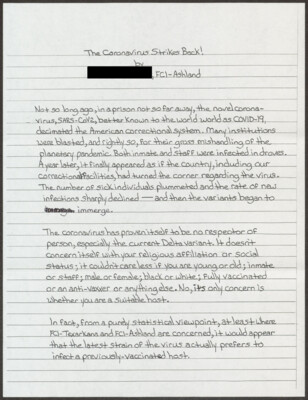 The Coronavirus Strikes Back!
by
, FCI-Ashland
Not so long ago, in a prison not so far away, the novel corona-
virus, SARS-CoV2, better known to the world world as COVID-19,
decimated the American correctional system. Many institutions
were blasted, and rightly so, for their gross mishandling of the
planetary pandemic. Both inmate and staff were infected in droves.
A year later, it finally appeared as if the country, including our
correctional facilities, had turned the corner regarding the virus.
The number of sick individuals plummeted and the rate of new
infections sharply declined — and then the variants began to
immerge.
The coronavirus has proven itself to be no respector of
person, especially the current Delta variant. It doesn't
concern itself with your religious affiliation or social
status; it couldn't care less if you are young or old; inmate
or staff; male or female; black or white; fully vaccinated
or an anti-vaxer or anything else. No, its only concern is
whether you are a suitable host.
In fact, from a purely statistical viewpoint, at least where
FCI-Texarkana and FCI-Ashland are concerned, it would appear
that the latest strain of the virus actually prefers to
infect a previously-vaccinated host.